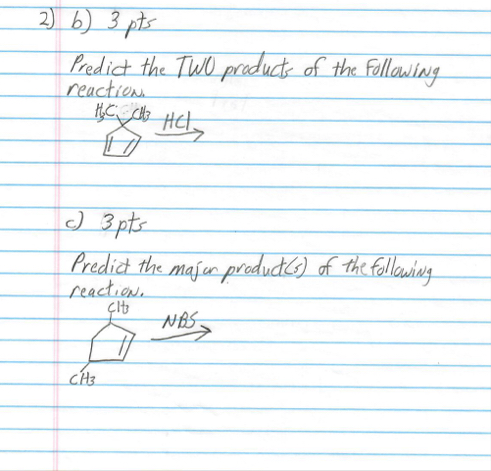 2) b) 3 pts
Predict the TWO products of the following
reaction.
H3C CH3 HCl
c) 3 pts
Predict the major product(s) of the following
reaction.
CH3
NBS
CH3